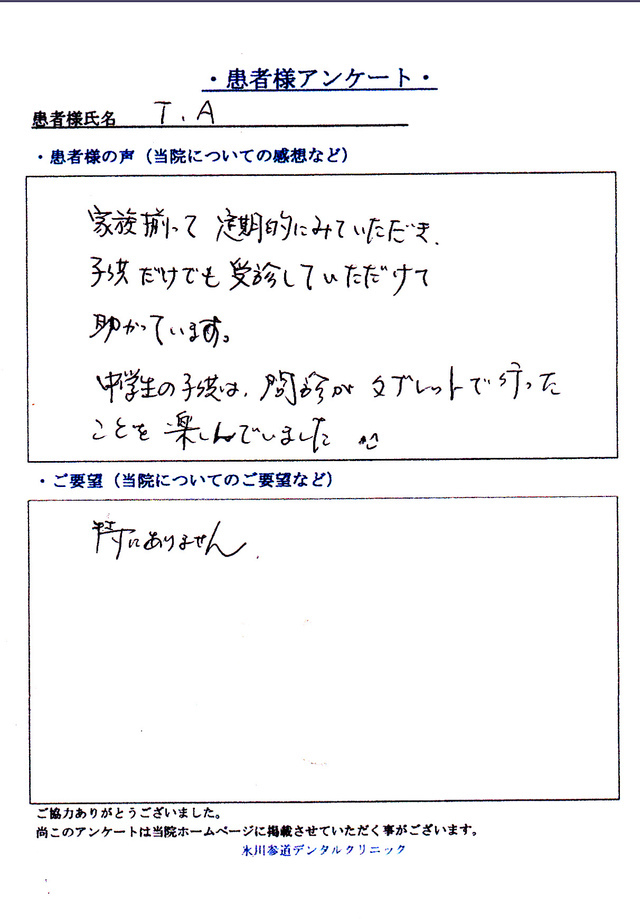 ・患者様アンケート・
患者様氏名 T.A
・患者様の声（当院についての感想など）
家族揃って 定期的にみていただき、
子供だけでも受診していただけて
助かっています。
中学生の子供は、問診がタブレットで行った
ことを楽しんでいました ^^
・ご要望（当院についてのご要望など）
特にありません.
ご協力ありがとうございました。
尚このアンケートは当院ホームページに掲載させていただく事がございます。
氷川参道デンタルクリニック